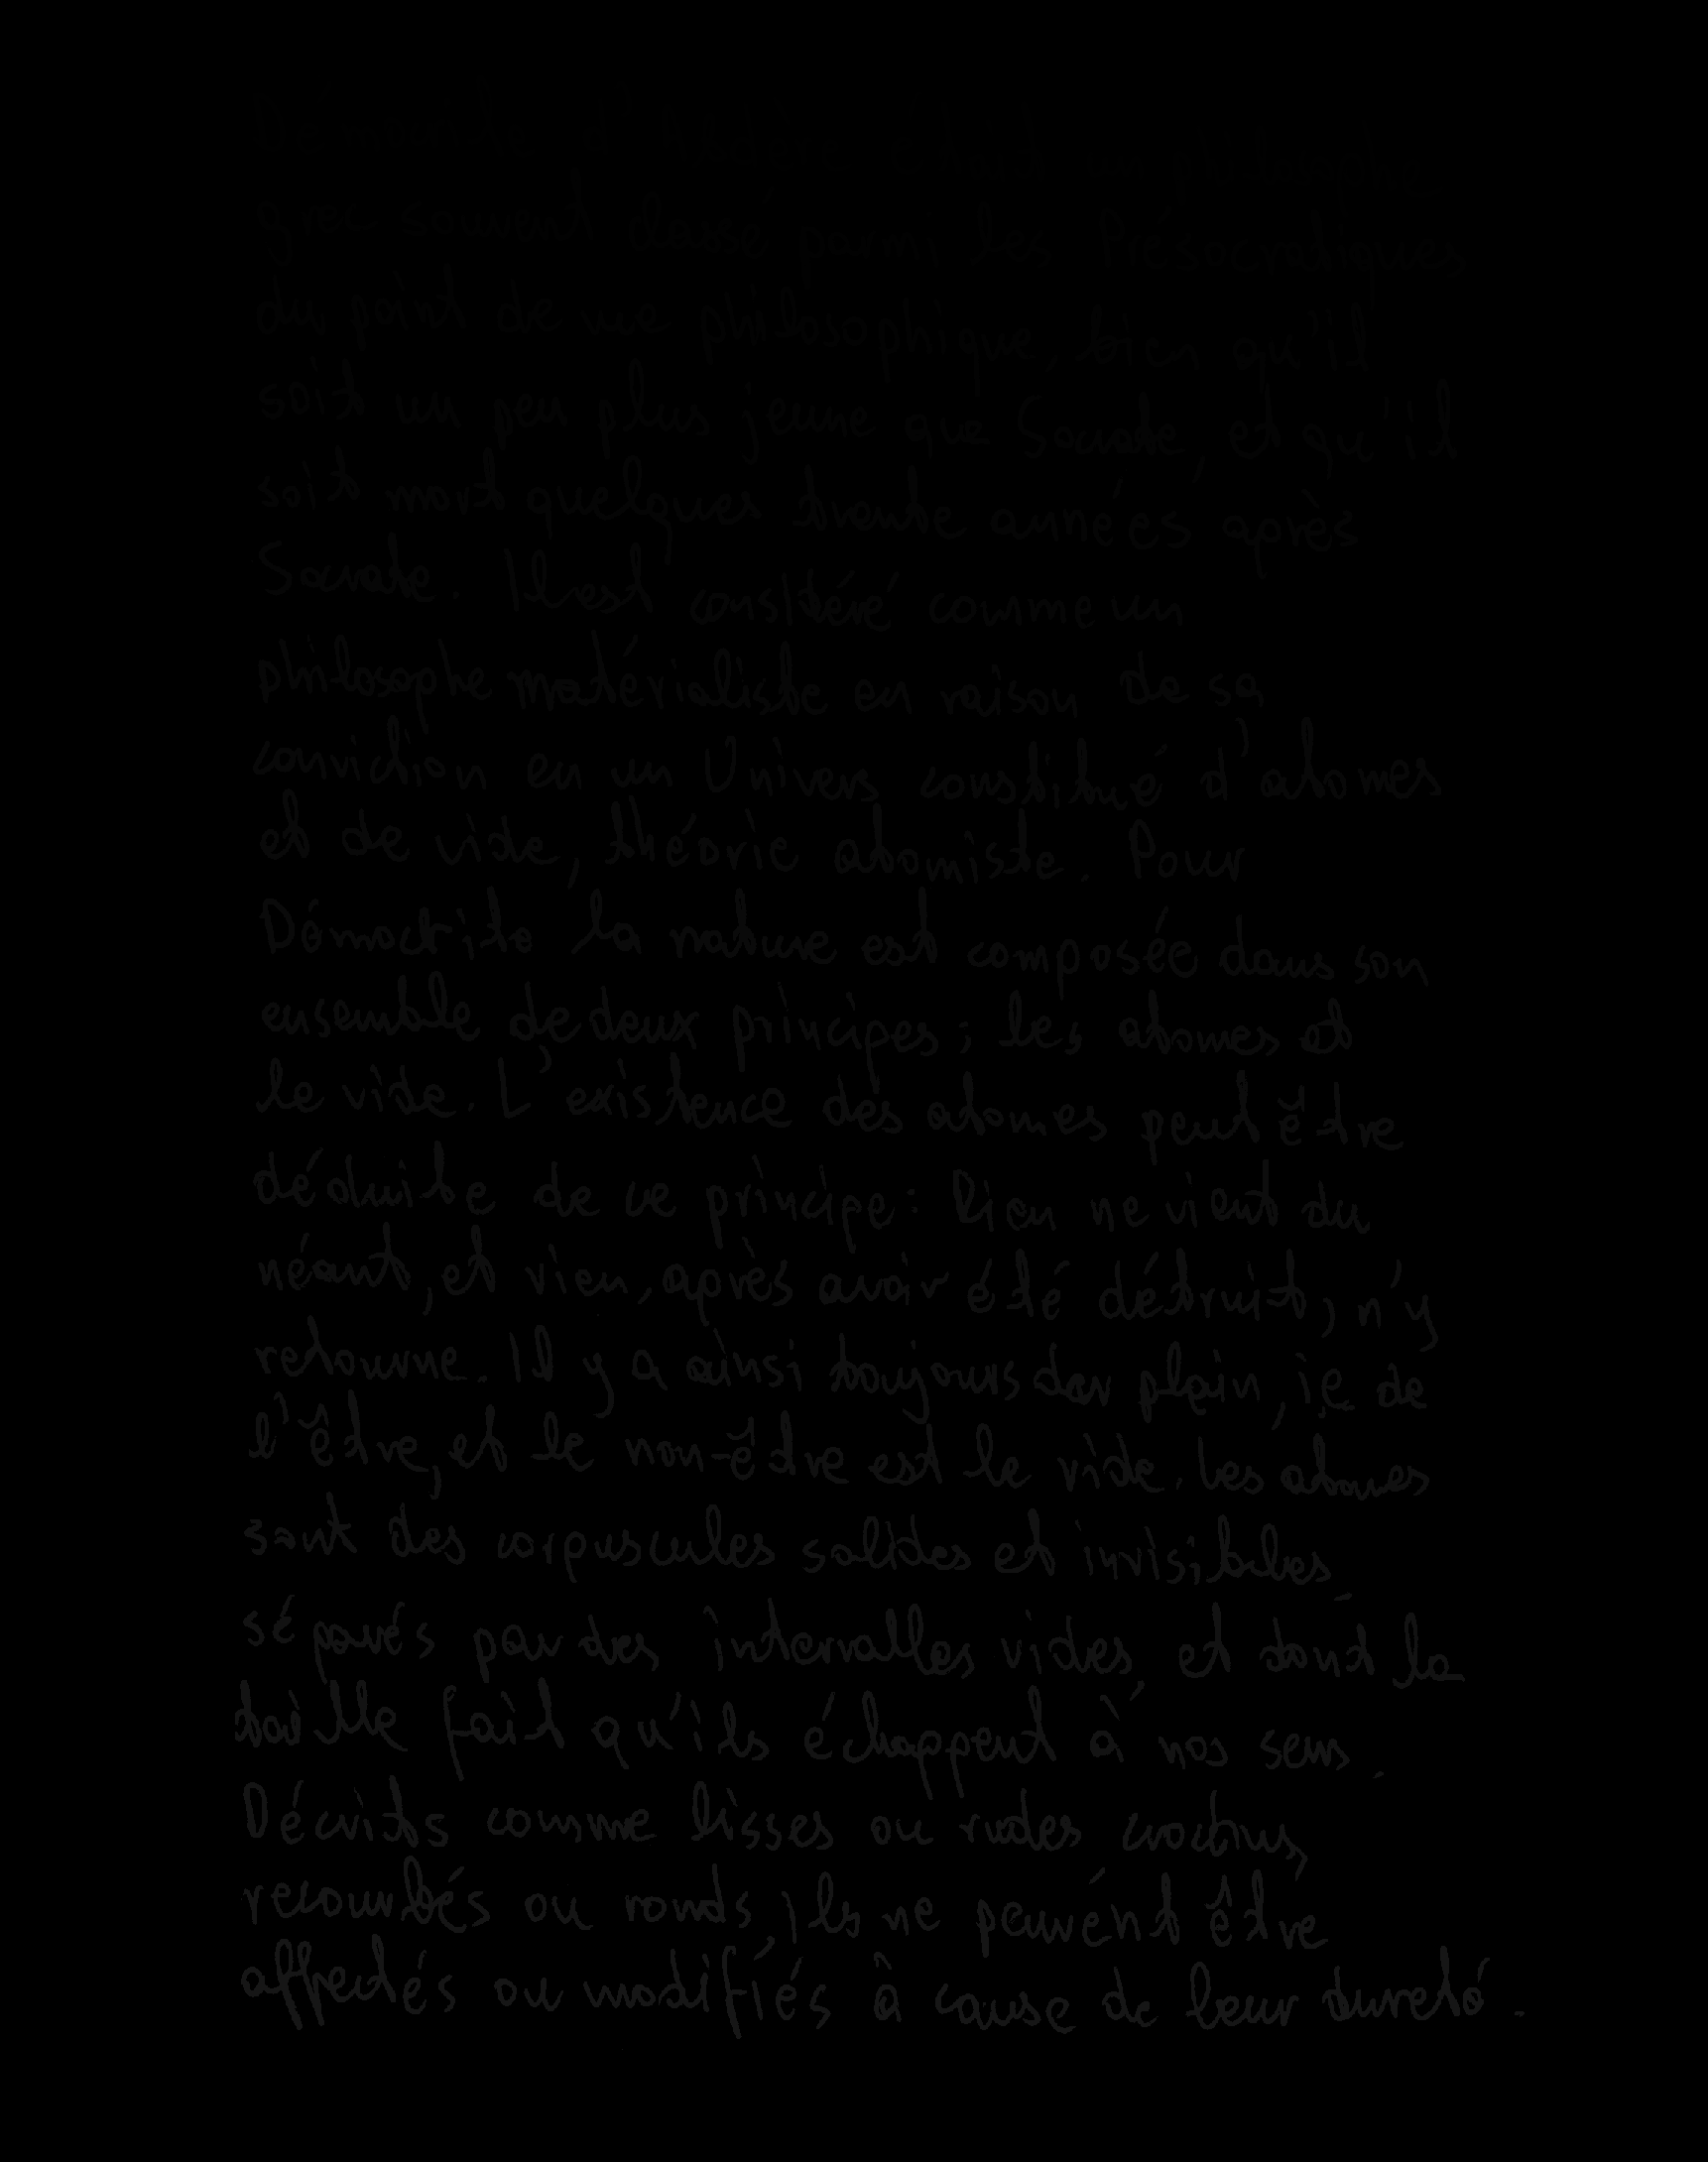 Démocrite d'Abdère était un philosophe
grec souvent classé parmi les Présocratiques
du point de vue philosophique, bien qu'il
soit un peu plus jeune que Socrate, et qu'il
soit mort quelques trente années après
Socrate. Il est considéré comme un
philosophe matérialiste en raison de sa
conviction en un Univers constitué d'atomes
et de vide, théorie atomiste. Pour
Démocrite la nature est composée dans son
ensemble de deux principes ; les atomes et
le vide. L'existence des atomes peut être
déduite de ce principe : Rien ne vient du
néant, et rien, après avoir été détruit, n'y
retourne. Il y a ainsi toujours du plein, ie de
l'être, et le non-être est le vide. Les atomes
sont des corpuscules solides et invisibles,
séparés par des intervalles vides, et dont la
taille fait qu'ils échappent à nos sens.
Décrits comme lisses ou rudes, crochus,
recourbés ou ronds, ils ne peuvent être
affectés ou modifiés à cause de leur dureté.